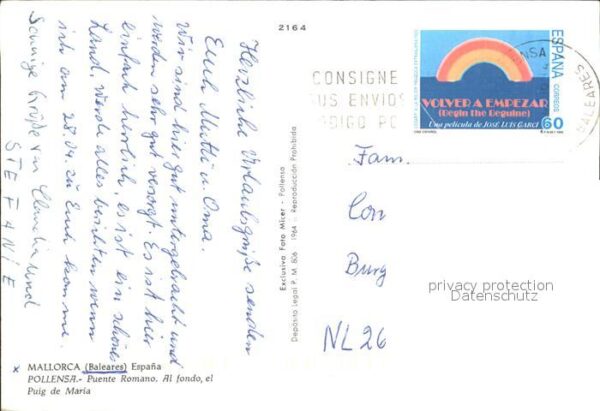 2164
Herzliche Urlaubsgrüße senden
Euch Mutti u. Oma.
Wir sind hier gut untergebracht und
werden sehr gut versorgt. Es ist hier
einfach herrlich, es ist ein schönes
Land. Werde alles berichten wenn
ich am 28.04. zu Euch komme.
Sonnige Grüße von Claudia und
STEFANIE
x MALLORCA (Baleares) España
POLLENSA.- Puente Romano. Al fondo, el
Puig de María
Exclusiva Foto Micer - Pollensa
Depósito Legal P. M. 806 - 1964 - Reproducción Prohibida
CONSIGNE
SUS ENVIOS
BALEARES
ESPAÑA
CORREOS
60
VOLVER A EMPEZAR
(Begin the Beguine)
Una película de JOSÉ LUIS GARCI
Fam.
Con
Burg
NL 26
privacy protection
Datenschutz